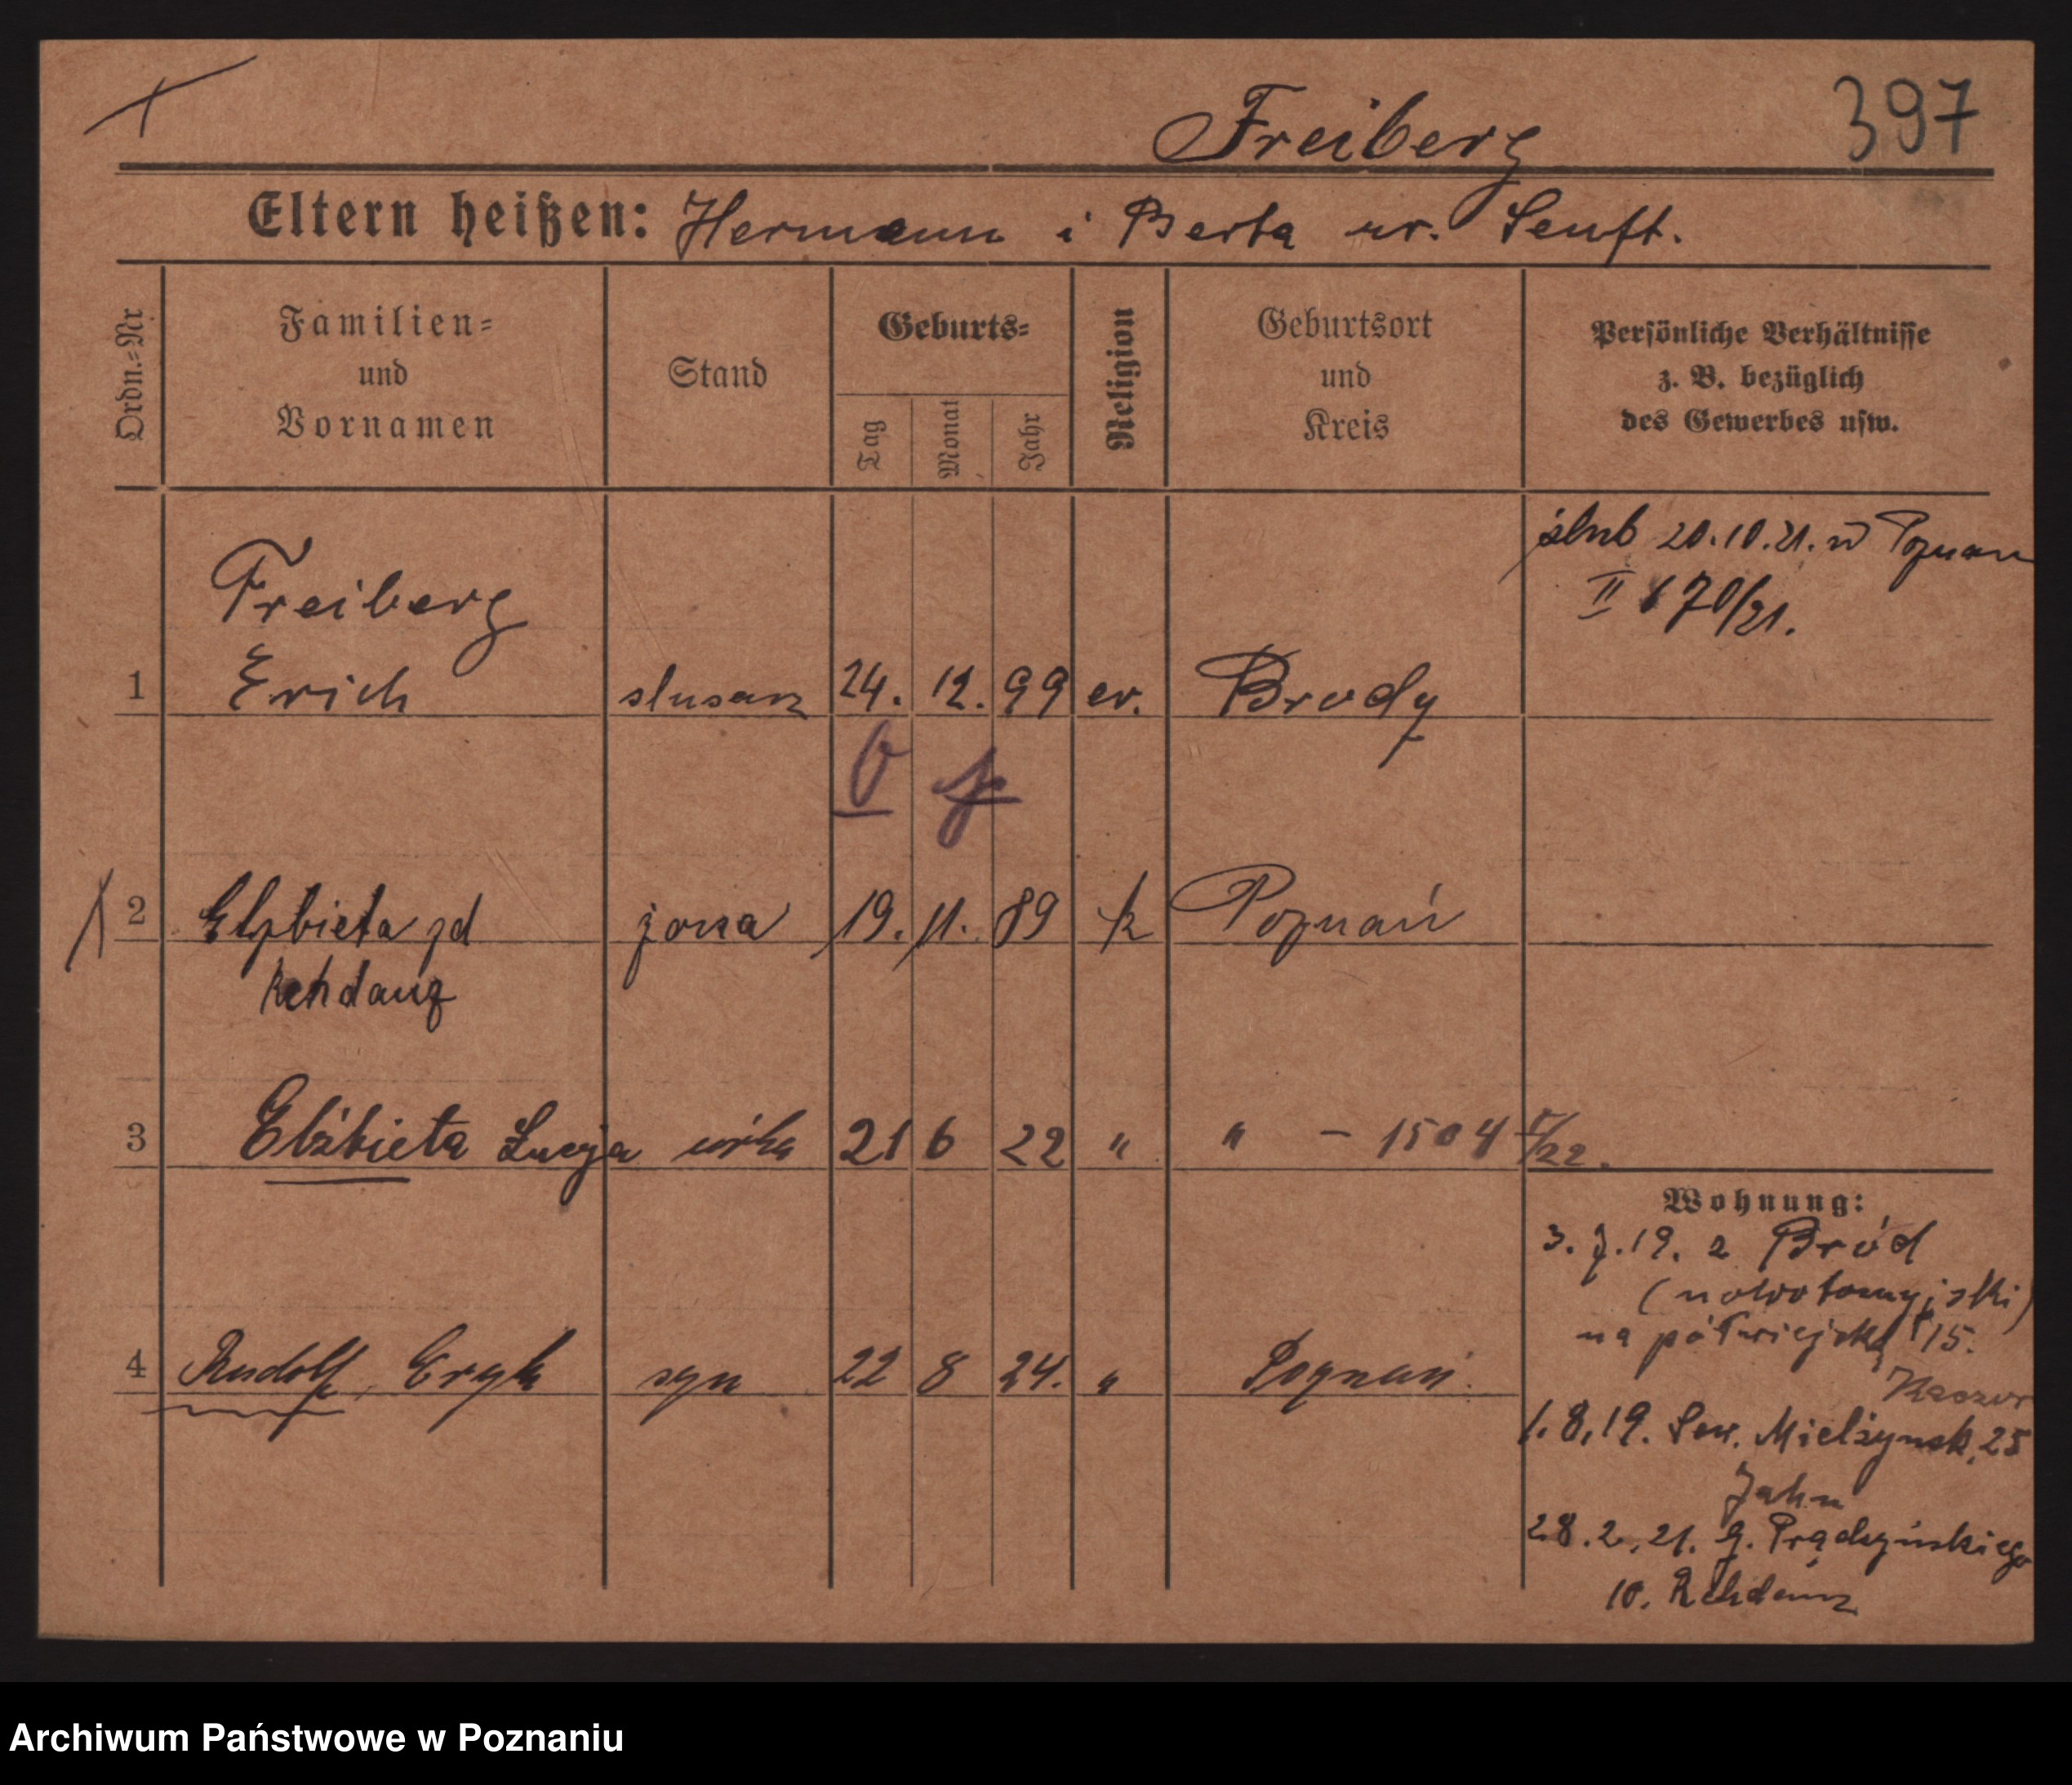 Freiberg
397
Eltern heißen: Hermann i Berta ur. Senft.
Ordn.=Nr
Familien=
und
Vornamen
Stand
Geburts=
Tag
Monat
Jahr
Religion
Geburtsort
und
Kreis
Persönliche Verhältnisse
z. B. bezüglich
des Gewerbes usw.
ślub 20.10.21. w Poznan
II 670/21.
Freiberg
1 Erich slusarz 24. 12. 99 ev. Brody
2 Elżbieta zd żona 19. 11. 89 k Poznań
Rehdanz
3 Elżbieta Lucja córka 21 6 22 " " - 1504 /22.
Wohnung:
3. 7. 19. z Bród
(nowotomyjski)
na półwiejską 15.
Kaczor
4 Rudolf, Eryk syn 22 8 24. " Poznań.
1. 8. 19. Sew. Mielżynsk. 25
Jahn
28. 2. 21. g. Prądzyńskiego
10. Rehdanz
Archiwum Państwowe w Poznaniu